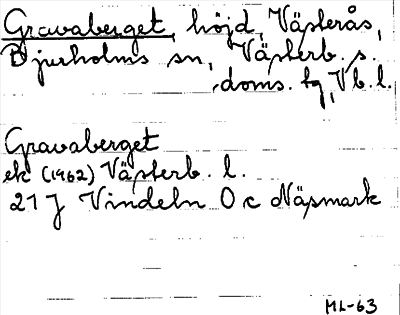 Gravaberget, höjd, Västerås,
Bjurholms sn, Västerb. s.
doms. tg, Vb. l.
Gravaberget
ek (1962) Västerb. l.
21 J Vindeln O c Näsmark
ML-63